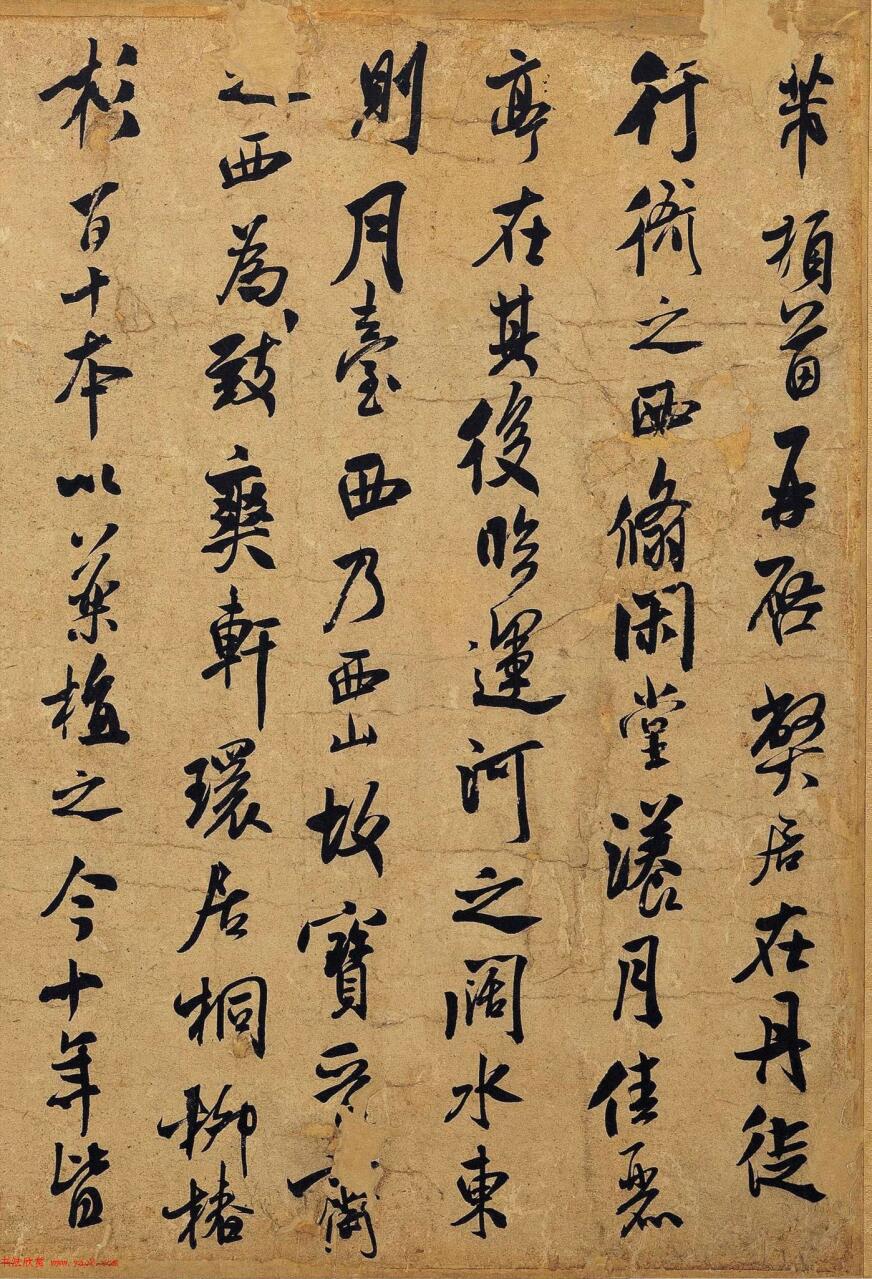 芾頓首再啓弊居在丹徒
行衙之西翛閑堂漾月佳麗
亭在其後臨運河之闊水東
則月臺西乃西山故寶晉齋
之西為致爽軒環居桐柳椿
杉百十本以藥植之今十年皆
书法欣赏 www.yac8.com